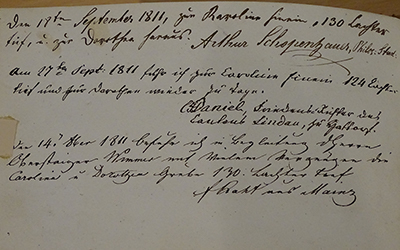 Den 12ten September 1811, zur Karoline hinein, 130 Lachter
tief, u. zur Dorothea heraus. Arthur Schopenhauer, Philos. Stud.
Am 27ten Sept. 1811 fuhr ich zur Caroline hinein 124 Lachter
tief und zur Dorothea wieder zu Tage.
C. Daniel, Friedensrichter des
Cantons Lindau, zu
Den 14t 8ber 1811 befuhr ich in Begleitung d Herrn
Obersteiger Wimmer mit Vergnügen die
Carolina u Dorothea Grube 130. Lachter tief
aus Mainz